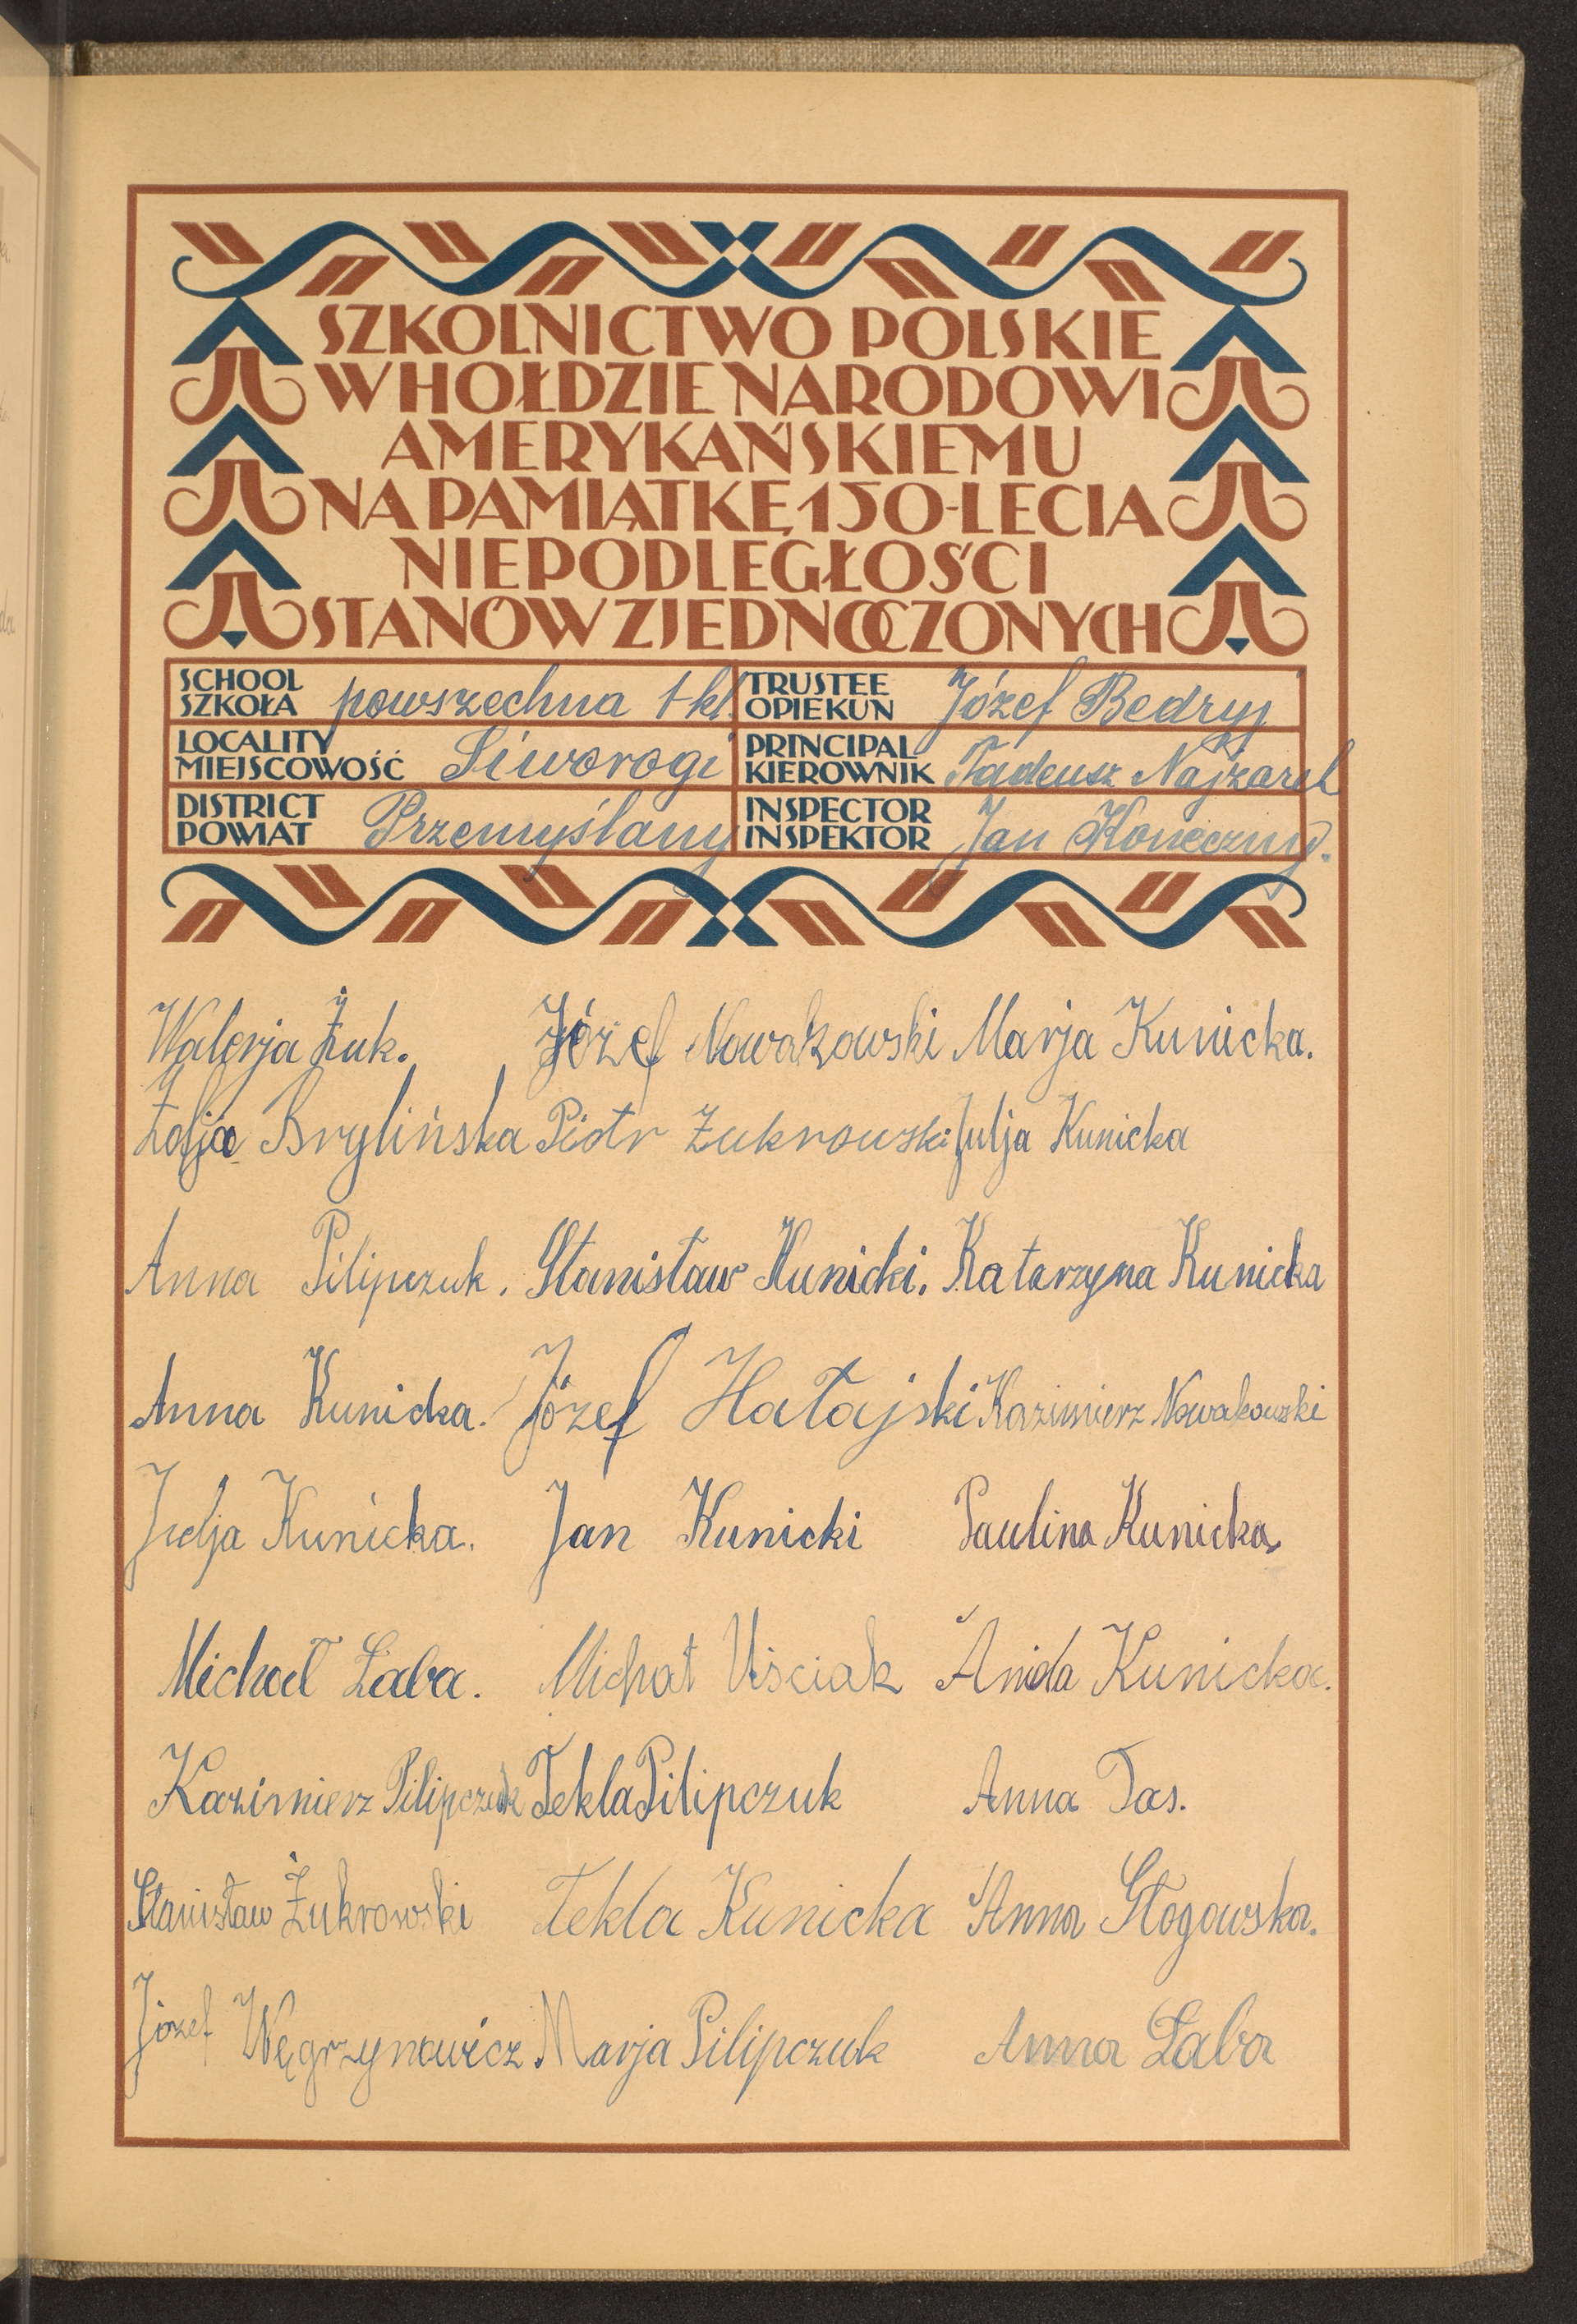 SZKOLNICTWO POLSKIE
W HOŁDZIE NARODOWI
AMERYKAŃSKIEMU
NA PAMIĄTKĘ 150-LECIA
NIEPODLEGŁOŚCI
STANÓW ZJEDNOCZONYCH
SCHOOL
SZKOŁA powszechna 1-kl.
TRUSTEE
OPIEKUN Józef Bedryj
LOCALITY
MIEJSCOWOŚĆ Siworogi
PRINCIPAL
KIEROWNIK Tadeusz Najzarek
DISTRICT
POWIAT Przemyślany
INSPECTOR
INSPEKTOR Jan Koneczny.
Walerja Żuk. Józef Nowakowski Marja Kunicka.
Zofja Brylińska Piotr Żukrowski Julja Kunicka
Anna Pilipczuk. Stanisław Kunicki. Katarzyna Kunicka
Anna Kunicka. Józef Hałajski Kazimierz Nowakowski
Julja Kunicka. Jan Kunicki Paulina Kunicka
Michał Laba. Michał Uściak Aniela Kunicka.
Kazimierz Pilipczuk Tekla Pilipczuk Anna Tas.
Stanisław Żukrowski Tekla Kunicka Anna Głogowska.
Józef Węgrzynowicz Marja Pilipczuk Anna Laba